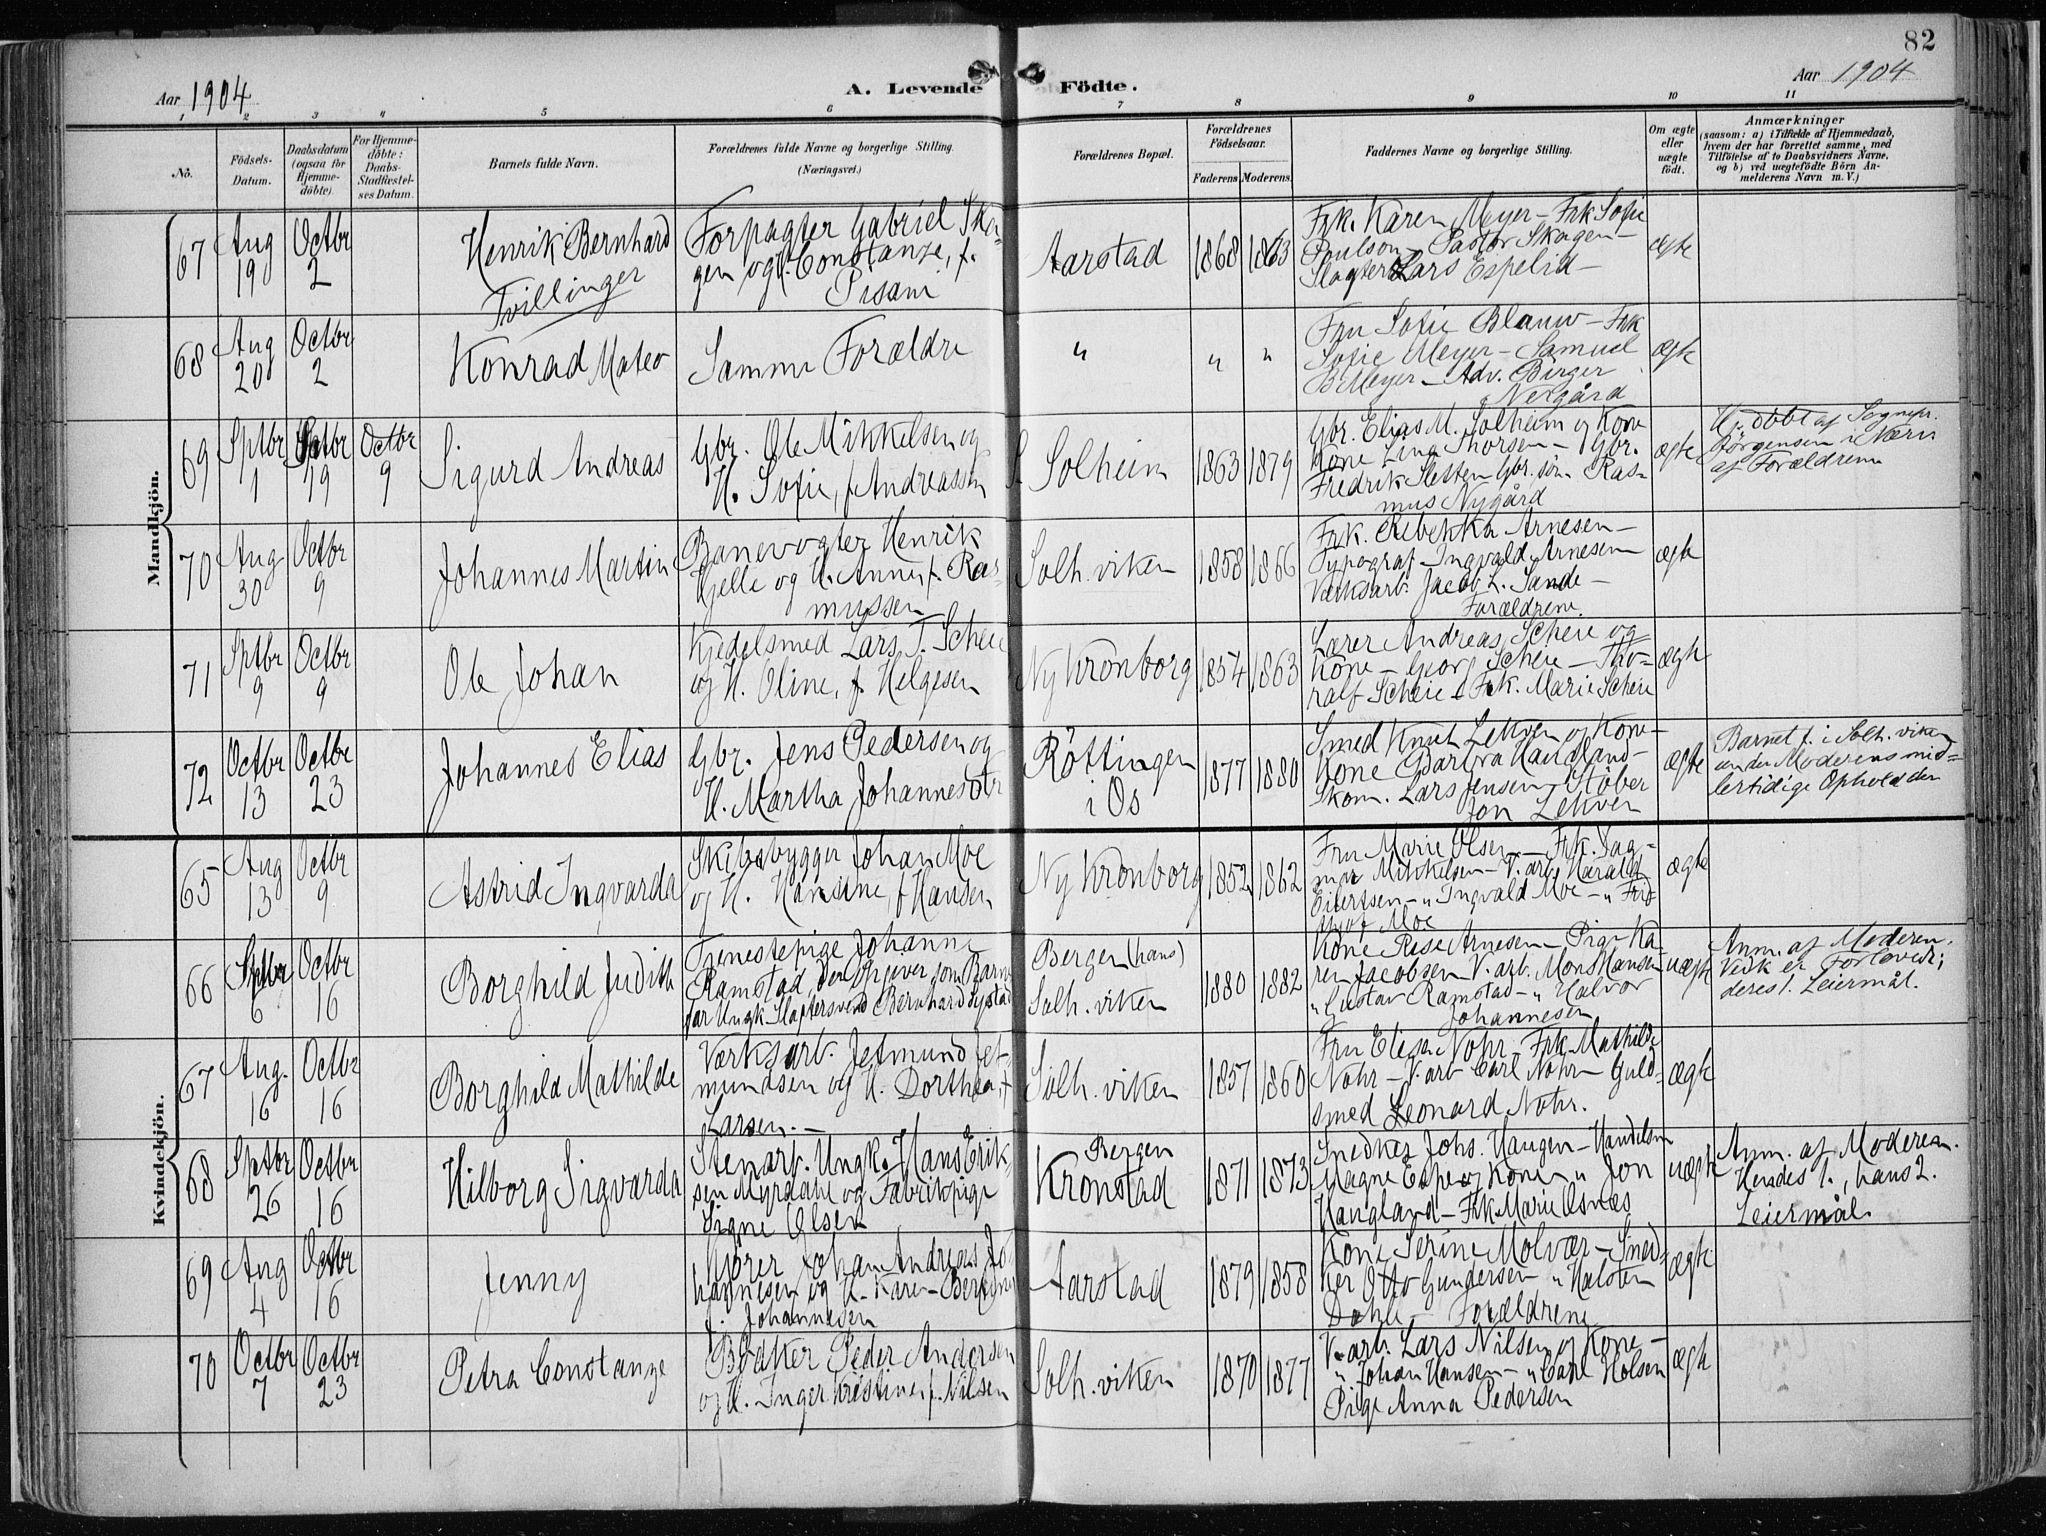 82
Aar 1904
A. Levende Födte.
Aar 1904
1 2 3 4 5 6 7 8 9 10 11
No.
Födsels-
Datum.
Daabsdatum
(ogsaa for
Hjemme-
döbte).
For Hjemme-
döbte:
Daabs-
Stadfæstel-
ses Datum.
Barnets fulde Navn.
Forældrenes fulde Navne og borgerlige Stilling.
(Næringsvei.)
Forældrenes Bopæl.
Forældrenes
Födselsaar.
Faderens. Moderens.
Faddernes Navne og borgerlige Stilling.
Om ægte
eller
uægte
födt.
Anmærkninger
(saasom: a) i Tilfælde af Hjemmedaab,
hvem der har forrettet samme, med
Tilföielse af to Daabsvidners Navne,
og b) ved uægtefödte Börn An-
melderens Navn m. V.)
Mandkjön.
67
Aug
19
Octbr
2
Henrik Bernhard
Tvillinger
Forpagter Gabriel Ska-
gen og H. Constanze, f.
Pisani
Aarstad
1868
1863
Frk. Karen Meyer – Frk Sofie
Poulson – Pastor Skagen –
Slagter Lars Espelid –
ægte
68
Aug
20
Octbr
2
Konrad Mateo
Samme Forældre
"
"
"
Fru Sofie Blauw – Frk
Sofie Meyer – Samuel
B Meyer – Adv. Birger
Nergård
ægte
69
Sptbr
1
Sptbr
19
Octbr
9
Sigurd Andreas
Gbr. Ole Mikkelsen og
H. Sofie, f Andreassen
S. Solheim
1863
1879
Gbr. Elias M. Solheim og Kone
Kone Lina Thorsen – Gbr.
Fredrik Sletten Gbr. sön Ras-
mus Nygård
ægte
Hj. döbt af Sognepr.
Jörgensen i Nærv
af Forældrene
70
Aug
30
Octbr
9
Johannes Martin
Banevogter Henrik
Hjelle og H. Anne, f. Ras-
mussen
Solh. viken
1858
1866
Frk. Rebekka Arnesen –
Typograf Ingvald Arnesen
Værksarb. Jacob L. Sande –
Forældrene.
ægte
71
Sptbr
9
Octbr
9
Ole Johan
Kjedelsmed Lars T. Scheie
og H. Oline, f. Helgesen
Ny Kronborg
1854
1863
Lærer Andreas Scheie og
Kone – Georg Scheie – Thv-
ralf Scheie – Frk. Marie Scheie
ægte
72
Octbr
13
Octbr
23
Johannes Elias
Gbr. Jens Pedersen og
H. Martha Johannesdtr
Röttingen
i Os
1877
1880
Smed Knut Lekven og Kone –
Kone Barbra Haugland –
Skom. Lars Jensen – Stöber
Jon Lekven
ægte
Barnet f. i Solh. viken
under Moderens mid-
lertidige Ophold der
Kvindekjön.
65
Aug
13
Octbr
9
Astrid Ingvarda
Skibsbygger Johan Moe
og H. Hansine, f Hansen
Ny Kronborg
1852
1862
Fru Marie Olsen – Frk. Dag-
mar Mikkelsen – V. arb. Harald
Eilertsen – " Ingvald Moe – " Frid
tjof Moe
ægte
66
Sptbr
6
Octbr
16
Borghild Judith
Tjenestepige Johanne
Ramstad, der opgiver som Barne
far Ungk. Slagtersvend Bernhard
Bergen (hans)
Solh. viken
1880
1882
Kone Arnesen – Pige Ka-
ren Jacobsen V. arb. Mons Hansen
" Gustav Ramstad – " Halvor
Johannesen
uægte
Anm. af Moderen.
er Forlovede;
deres 1. Leiermål.
67
Aug.
16
Octbr
16
Borghild Mathilde
Værksarb. Jetmund Jet-
mundsen og H. Dorthea, f
Larsen. –
Solh. viken
1857
1860
Fru Elisa Nohr – Frk. Mathilde
Nohr – V. arb Carl Nohr – Guld-
smed Leonard Nohr.
ægte
68
Sptbr
26
Octbr
16
Hilborg Sigvarda
Stenarb. Ungk. Hans Erik-
sen Myrdahl og Fabrikpige
Signe Olsen
Bergen
Kronstad
1871
1873
Snedker Johs. Haugen – Handelsm
Magne Espe og Kone – " Jon
Haugland – Frk. Marie Osnæs
uægte
Anm. af Moderen.
Hendes 1., hans 2.
Leiermål.
69
Aug
4
Octbr
16
Jenny
Kjörer Johan Andreas Jo
hannesen og H. Karen
f. Johannesen
Aarstad
1879
1858
Kone Serine Molvær – Sned-
ker Otto Gundersen " Halsten
Dahle – Forældrene
ægte
70
Octbr
7
Octbr
23
Petra Constanze
Bödker Peder Andersen
og H. Inger Kristine, f. Nilsen
Solh. viken
1870
1877
V. arb. Lars Nilsen og Kone –
" Johan Hansen – " Carl Holsen
Pige Anna Pedersen
ægte